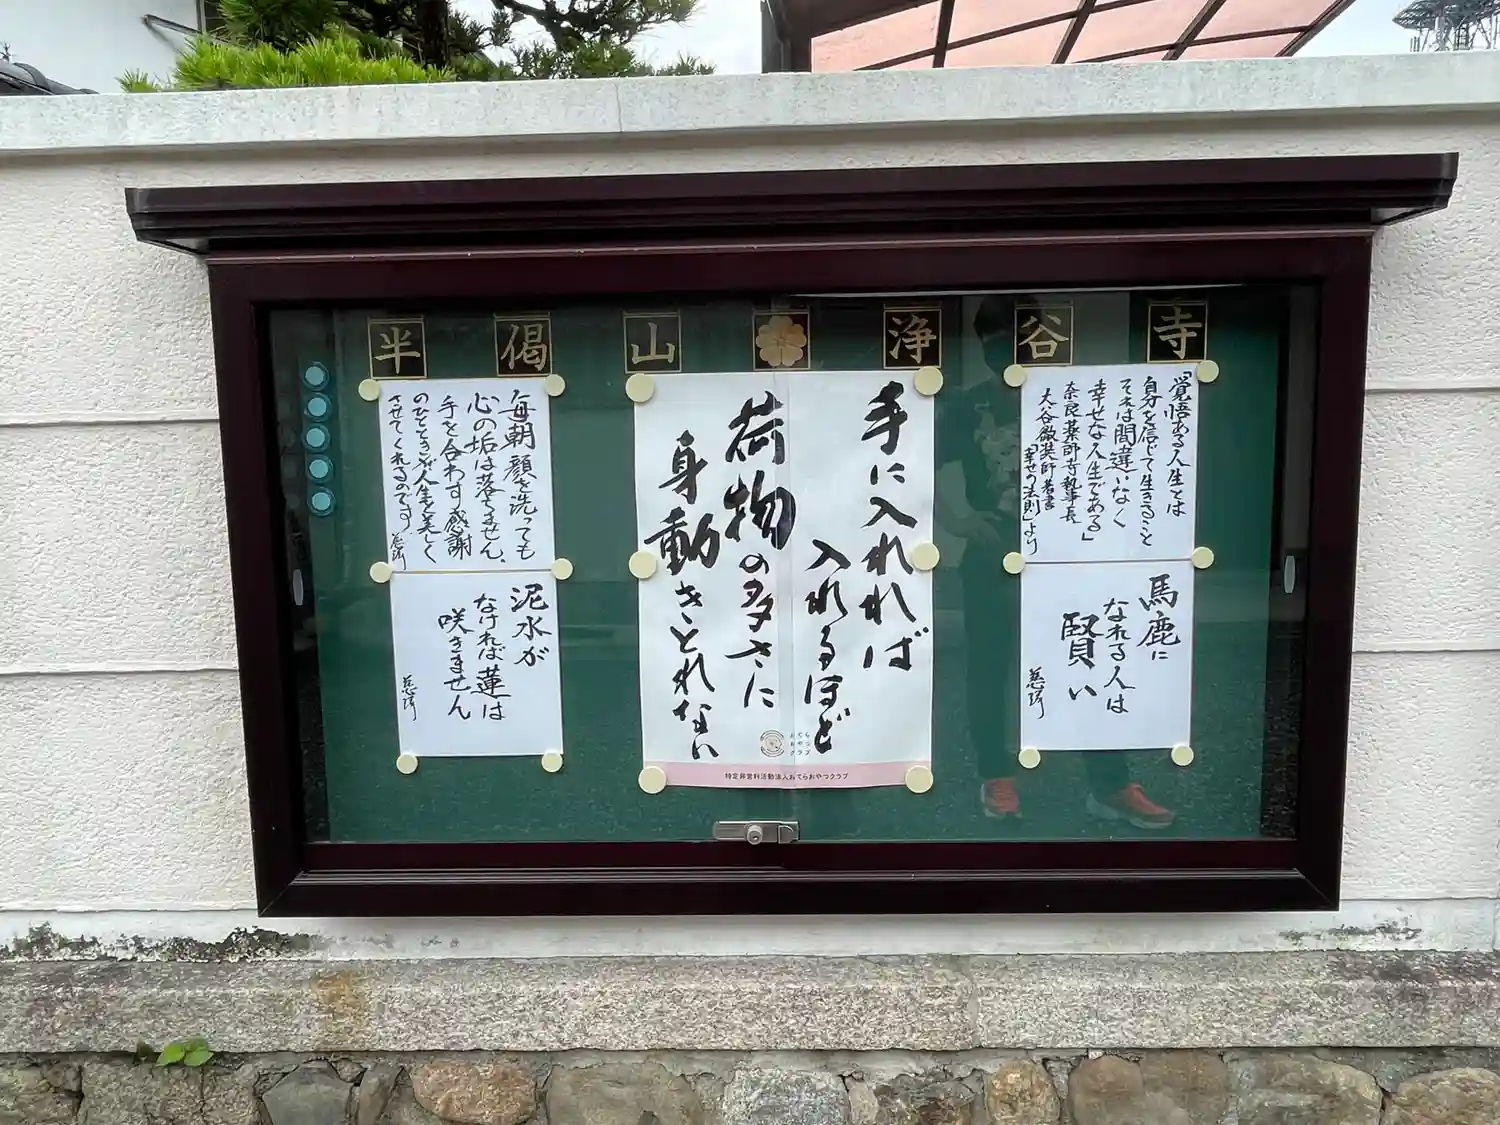 半偈山浄谷寺
「覚悟ある人生とは
自分を信じて生きること
それは間違いなく
幸せな人生である」
奈良薬師寺執事長
大谷徹奘師著書
「幸せの法則」より
馬鹿に
なれる人は
賢い
手に入れれば
入れるほど
荷物の多さに
身動きとれない
おてら
おやつ
クラブ
特定非営利活動法人おてらおやつクラブ
毎朝顔を洗っても
心の垢は落ちません。
手を合わす感謝
のひとときが人生を美しく
させてくれるのです
泥水が
なければ蓮は
咲きません